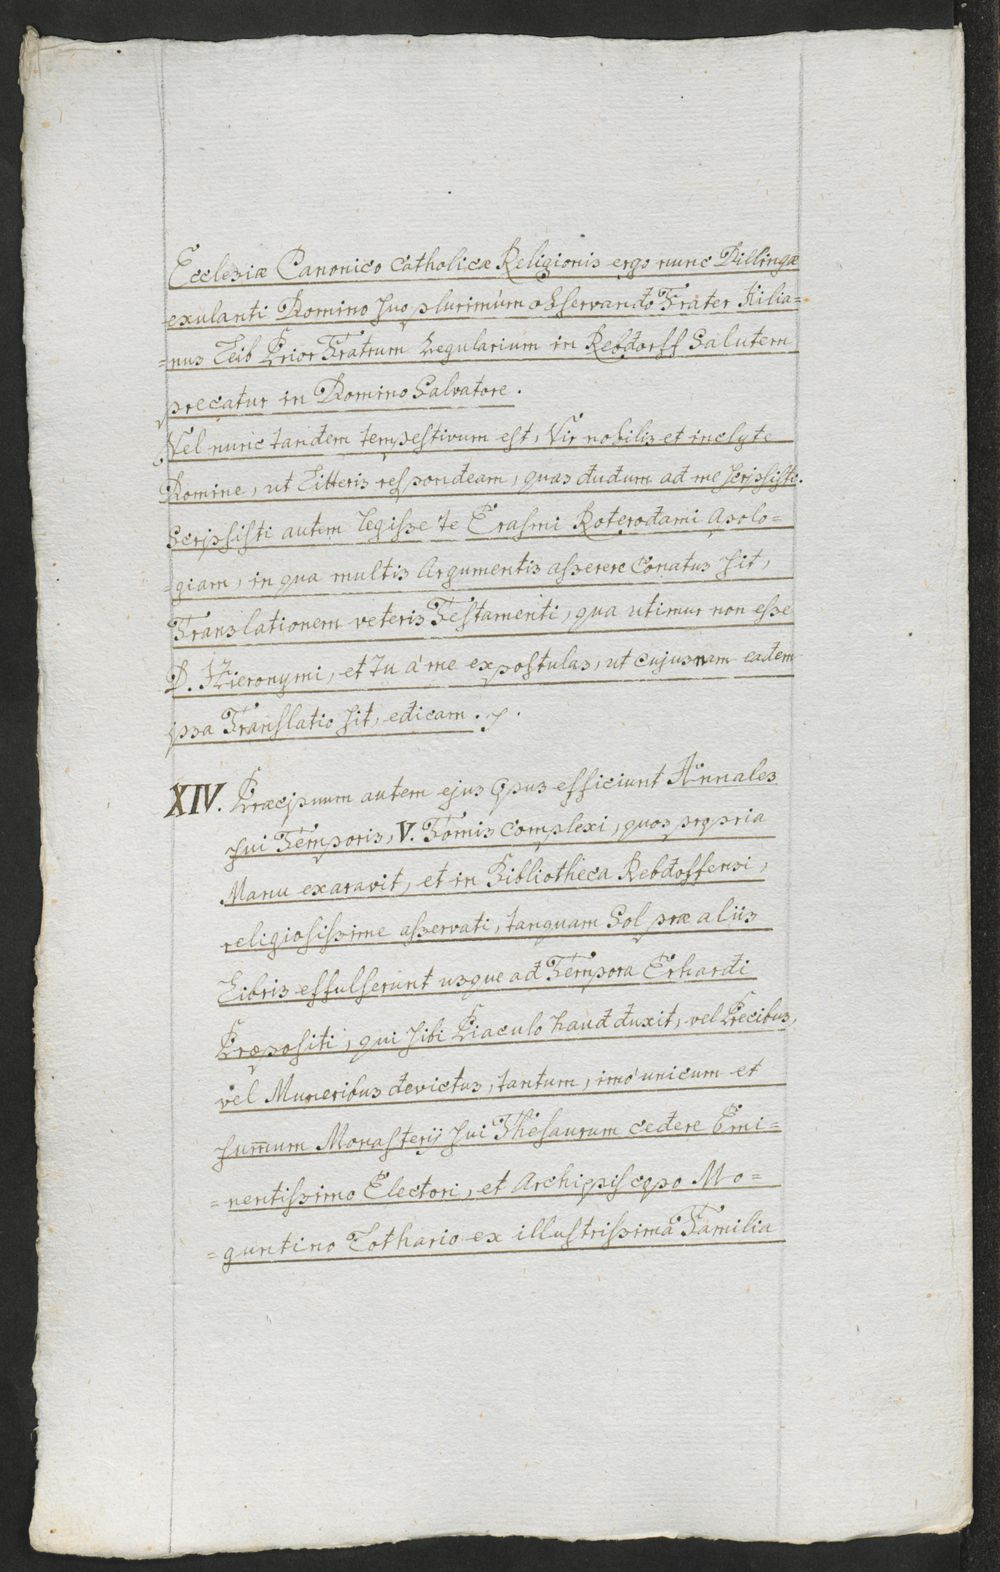 Ecclesiæ Canonico Catholicæ Religionis ergo nunc Dillingæ
exulanti Domino suo plurimùm observando Frater Kilia=
=nus Leib Prior Fratrum Regularium in Rebdorff Salutem
precatur in Domino Salvatore.
Vel nunc tandem tempestivum est, Vir nobilis et inclyte
Domine, ut Litteris respondeam, quas dudum ad me scripsisti.
Scripsisti autem legisse te Erasmi Roterodami Apolo=
=giam, in qua multis Argumentis asserere conatus sit,
Translationem veteris Testamenti, qua utimur non esse
D. Hieronymi, et Tu à me expostulas, ut cujusnam eadem
ipsa Translatio sit, edicam.
XIV. Præcipuum autem ejus Opus efficiunt Annales
sui Temporis, V. Tomis complexi, quos propria
Manu exaravit, et in Bibliotheca Rebdoffensi,
religiosissime asservati, tanquam Sol præ aliis
Libris effulserunt usque ad Tempora Erhardi
Præpositi, qui sibi Piaculo haud duxit, vel Precibus,
vel Muneribus devictus, tantum, imò unicum et
sum̄um Monasterij sui Thesaurum cedere Emi=
=nentissimo Electori, et Archipiscopo Mo=
=guntino Lothario ex illustrissima Familia